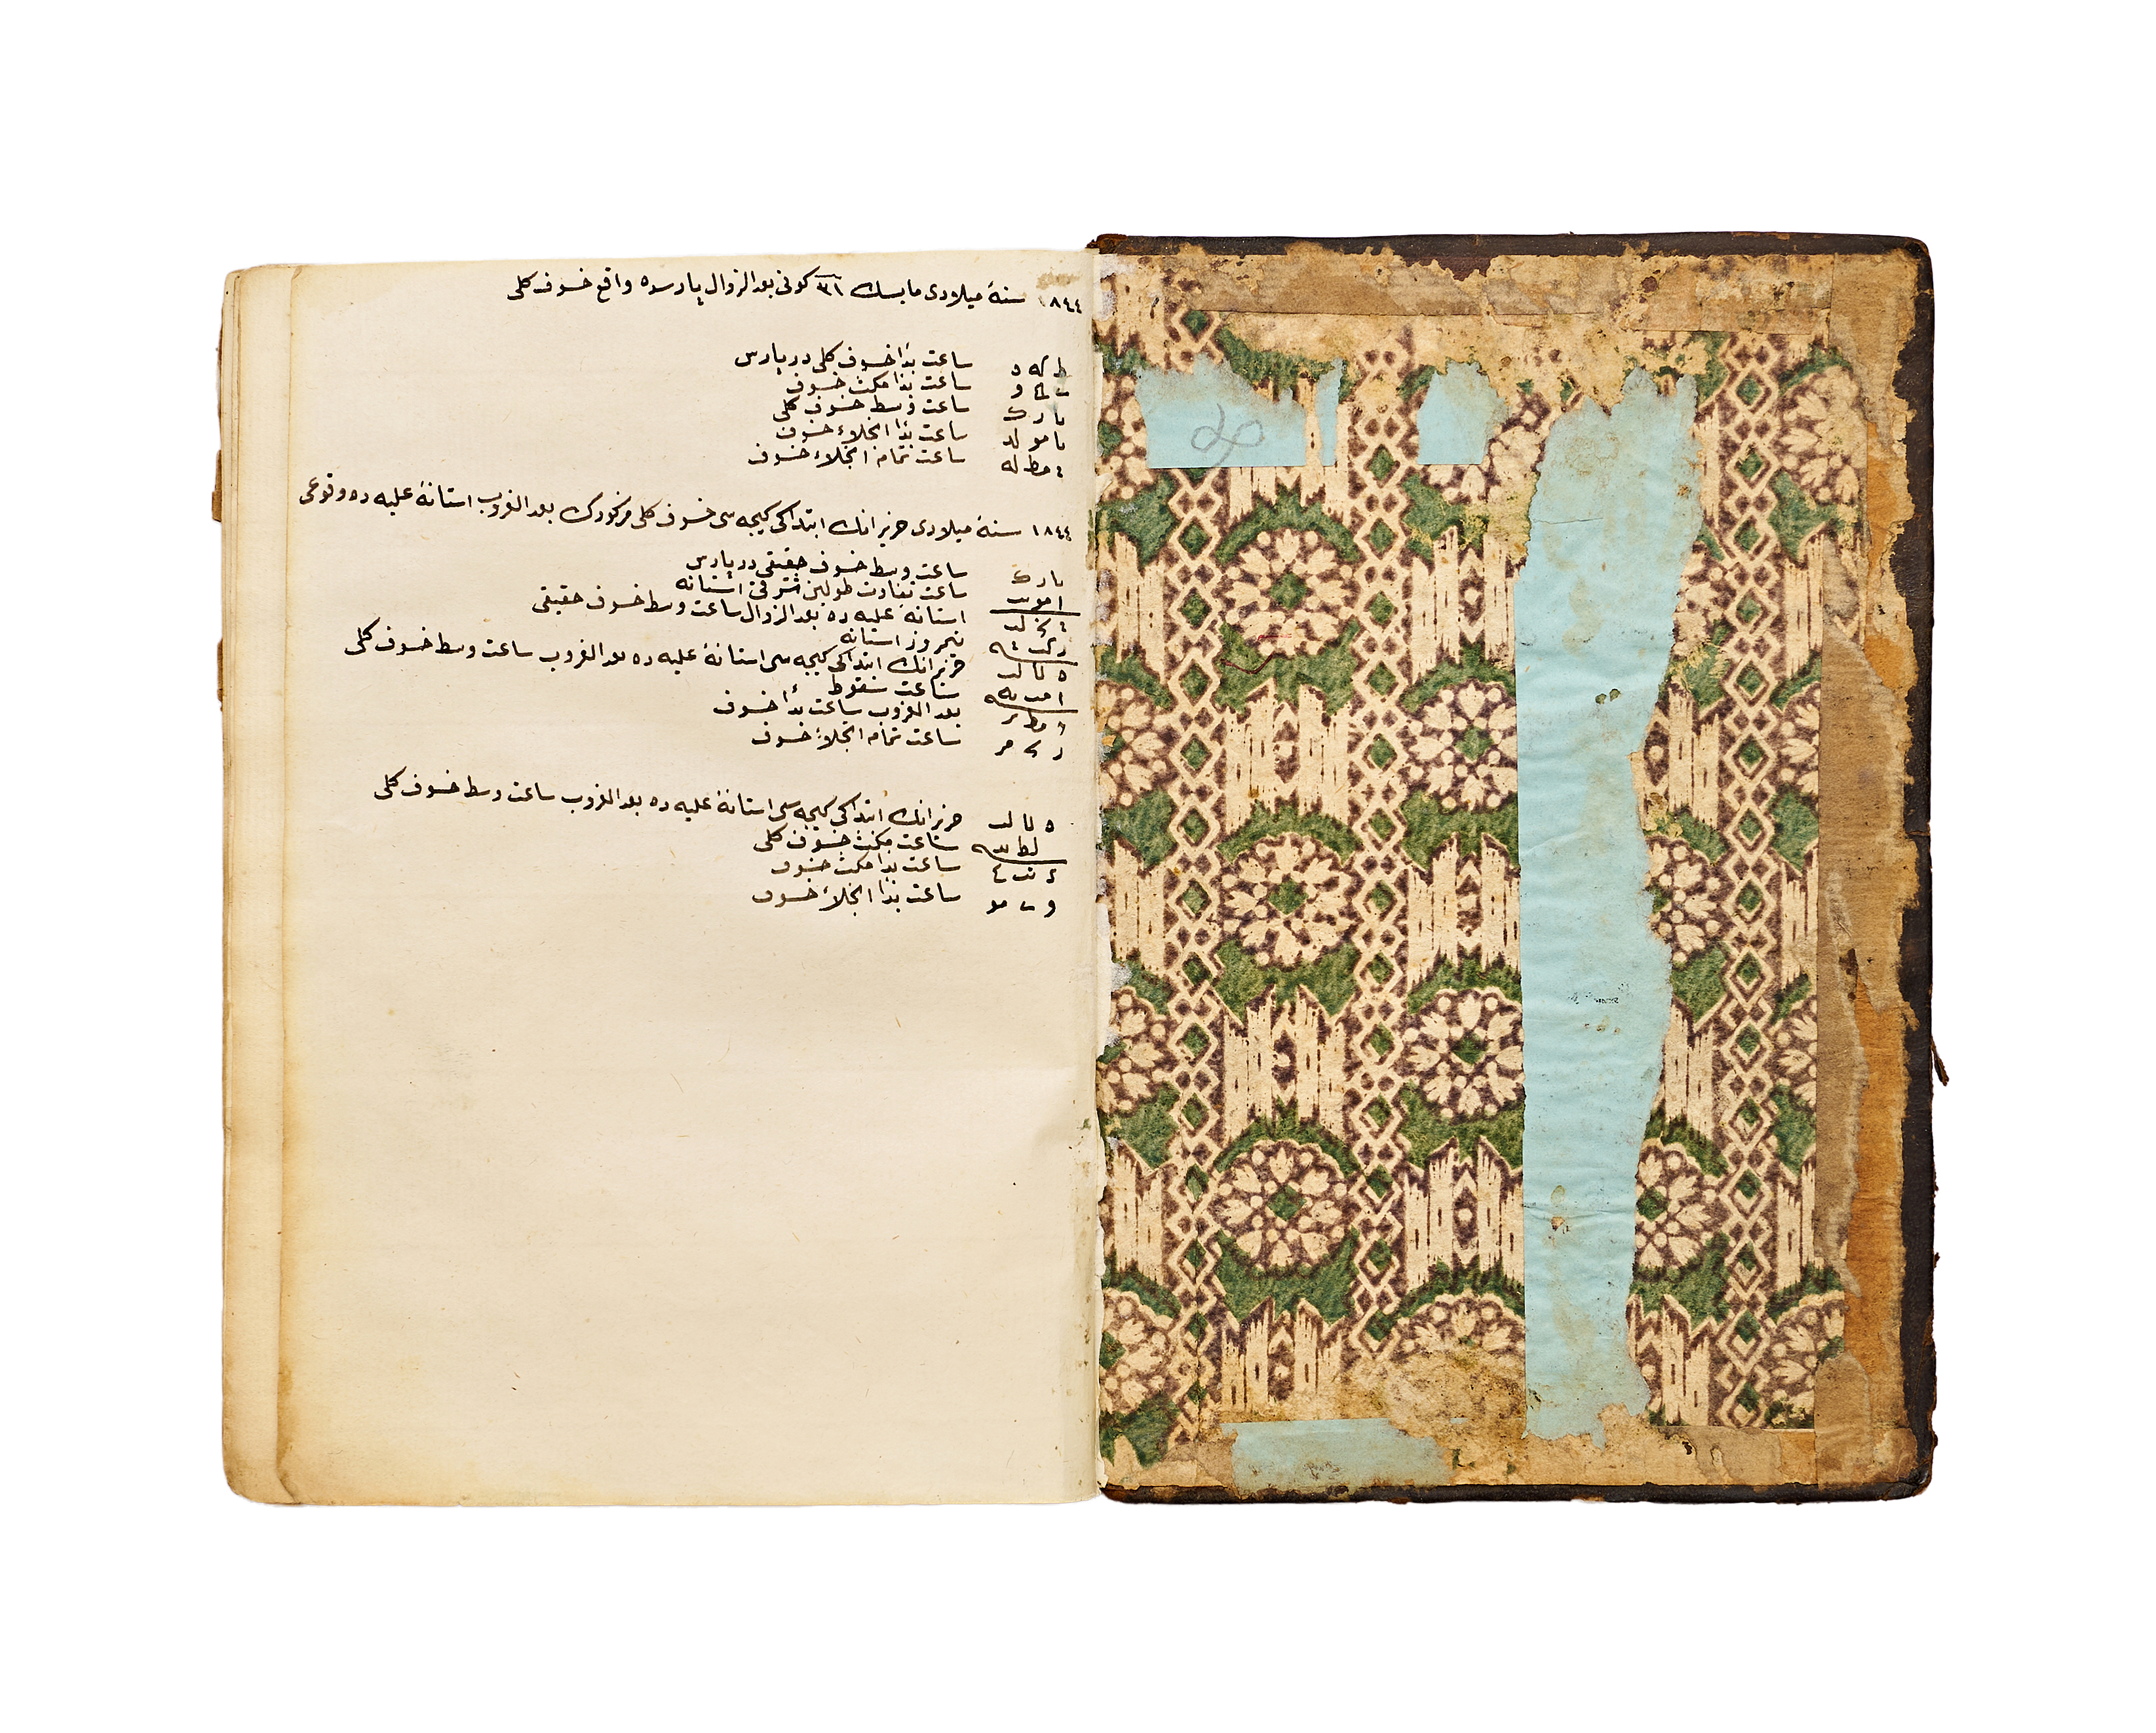 ١٨٤٤ سنۀ میلادی مایسك ٣١ کونی بعد الزوال پارسده واقع خسوف کلی
ط که د ساعت بدأ خسوف کلی در پارس
ساعت بدأ مکث خسوف
یا رك ساعت وسط خسوف کلی
یا مو لد ساعت بدأ انجلاء خسوف
مط له ساعت تمام انجلاء خسوف
١٨٤٤ سنۀ میلادی حزیرانك ابتداکی کیجه سی خسوف کلی مزکورك بعد الغروب استانۀ علیه ده وقوعی
یا رك ساعت وسط خسوف حقیقی در پارس
ا مو ساعت تفاوت طولین شرقی استانه
استانۀ علیه ده بعد الزوال ساعت وسط خسوف حقیقی
نیمروز استانه
ه لا لب حزیرانك ابتداکی کیجه سی استانۀ علیه ده بعد الغروب ساعت وسط خسوف کلی
ساعت سقوط
بعد الغروب ساعت بدأ خسوف
ساعت تمام انجلاء خسوف
ه لا لب حزیرانك ابتداکی کیجه سی استانۀ علیه ده بعد الغروب ساعت وسط خسوف کلی
ساعت مکث خسوف کلی
ساعت بدأ مکث خسوف
ساعت بدأ انجلاء خسوف